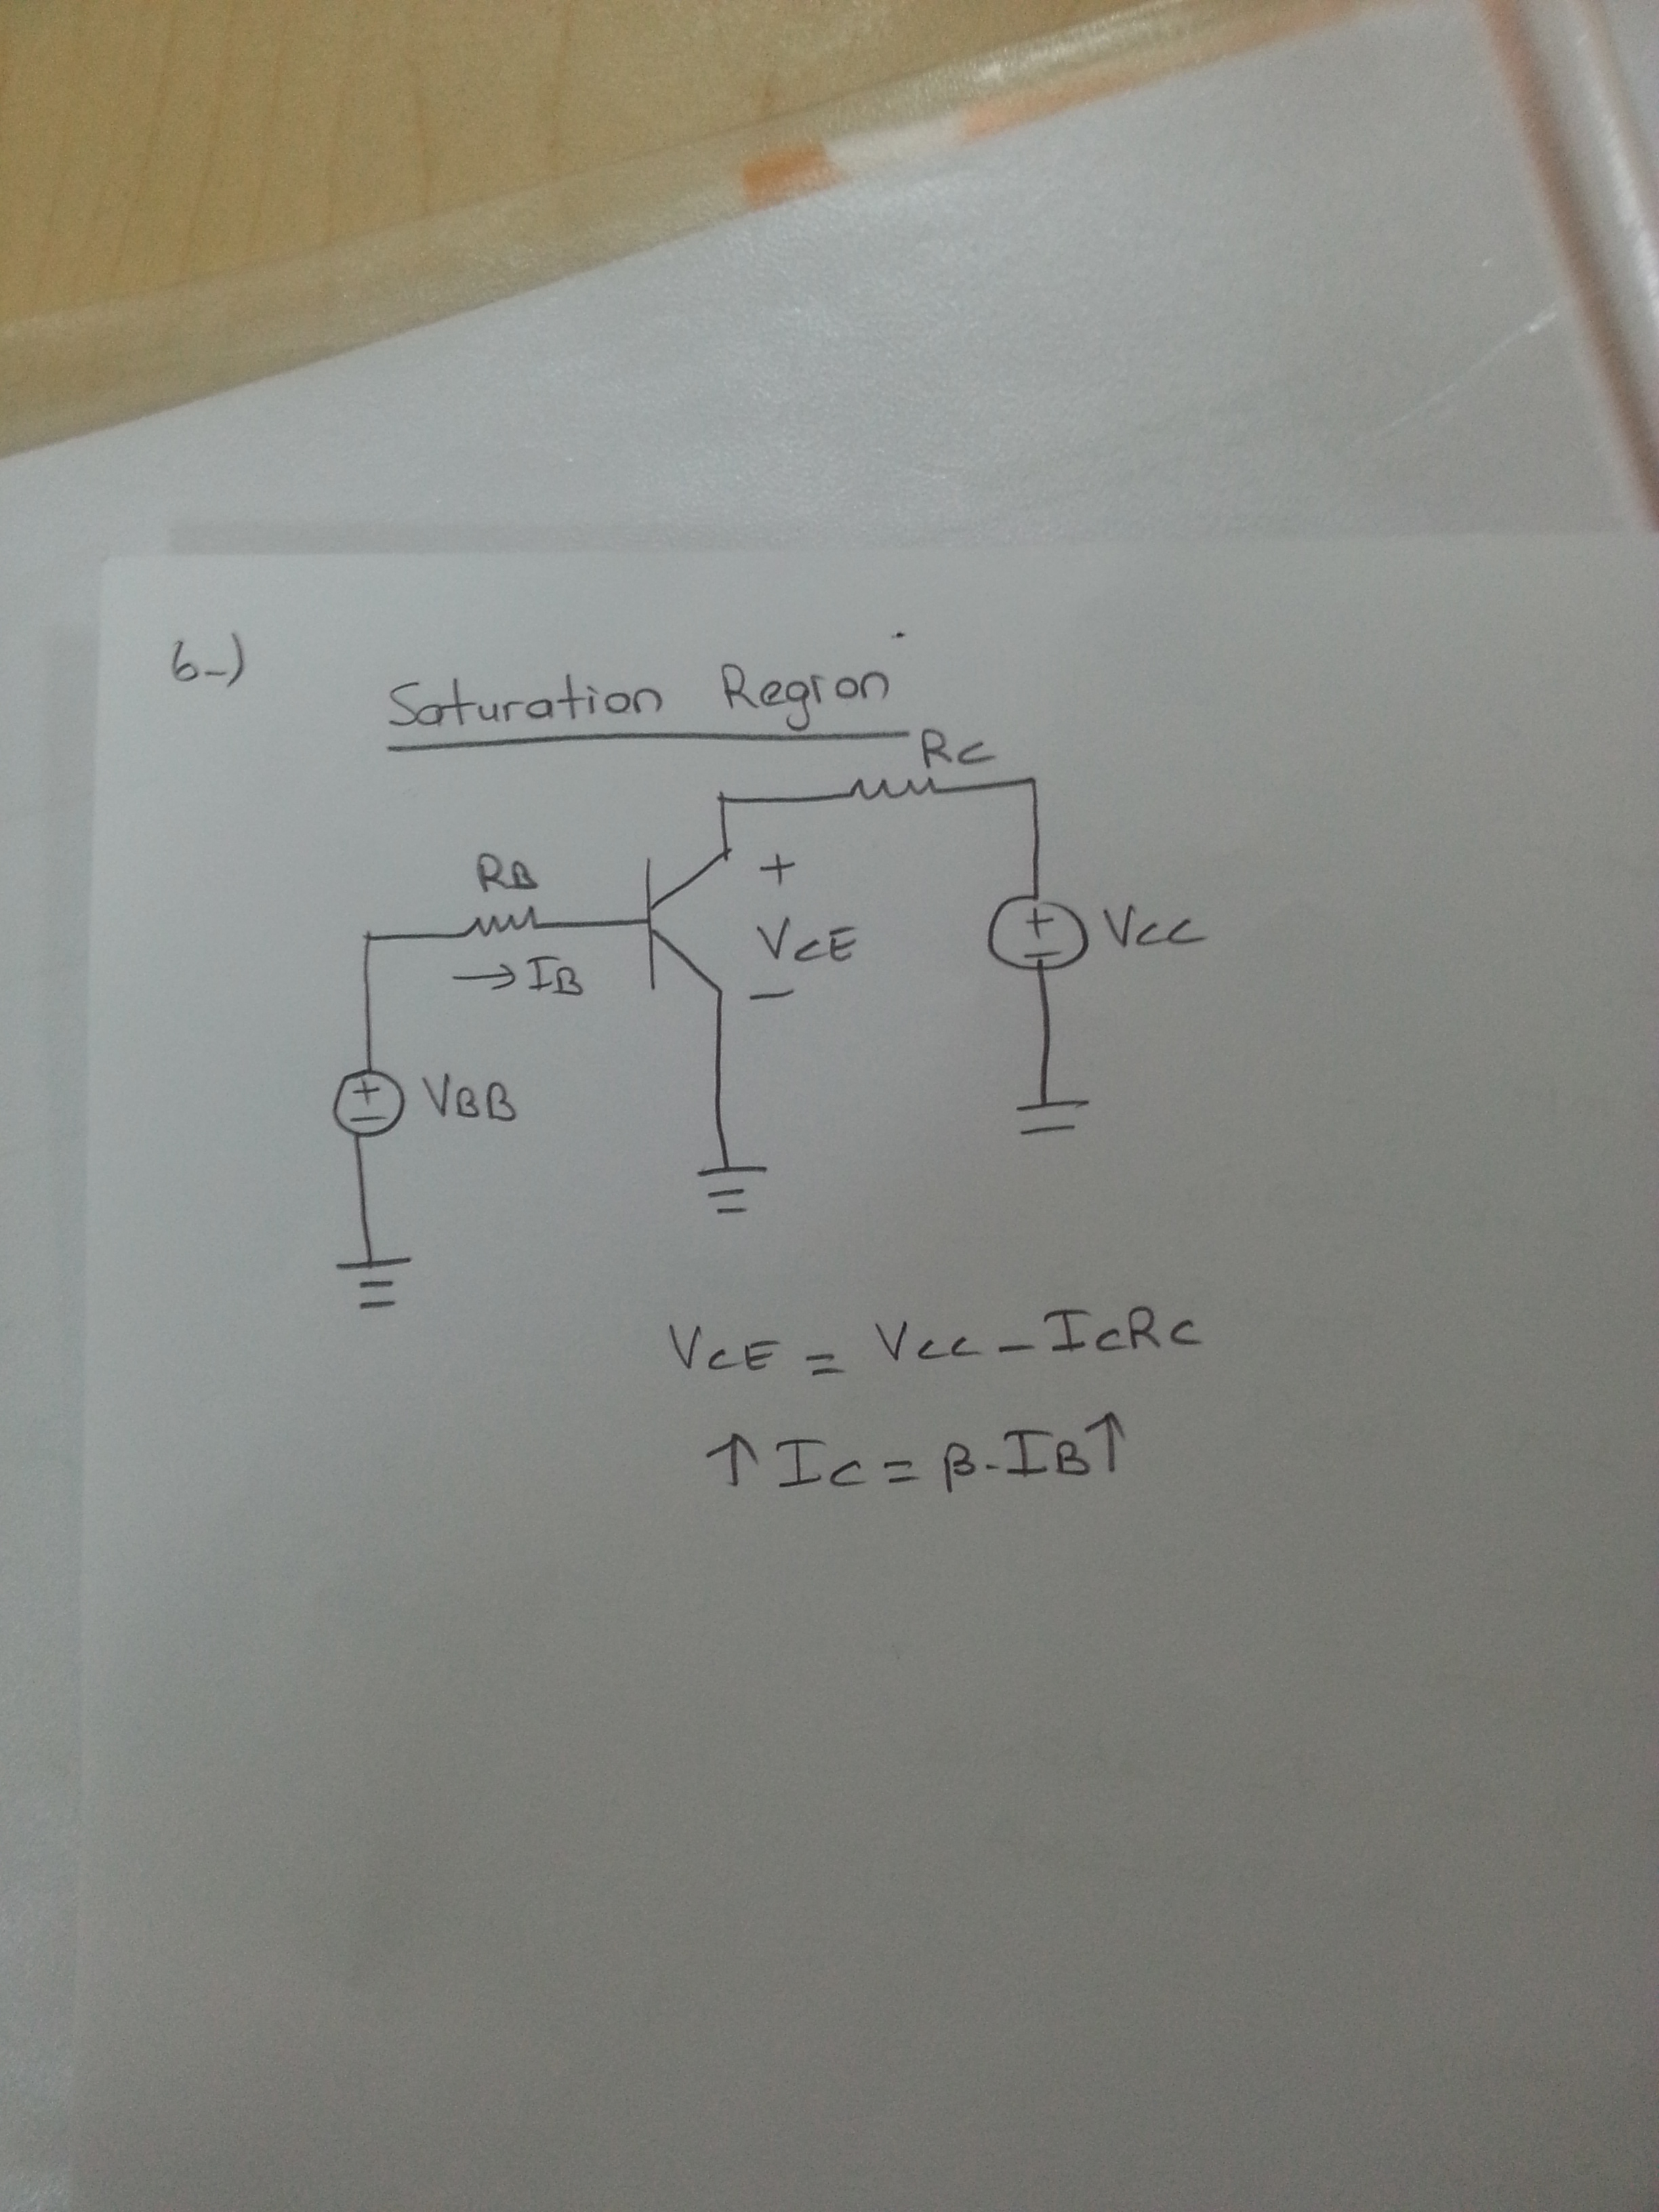 6-)
Saturation Region
RC
RB
+
VCE
-
→ IB
+
-
VCC
+
-
VBB
VCE = VCC - ICRC
↑ IC = β.IB↑